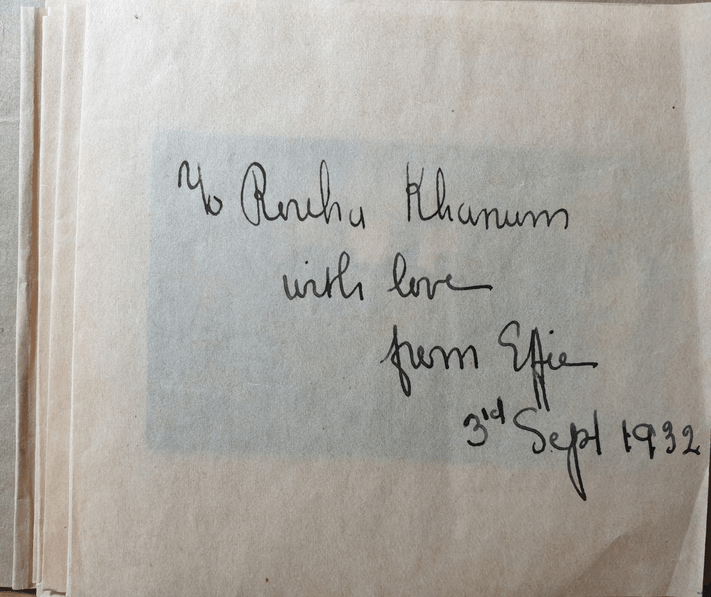 To Rouha Khanum
with love
from Effie
3rd Sept 1932